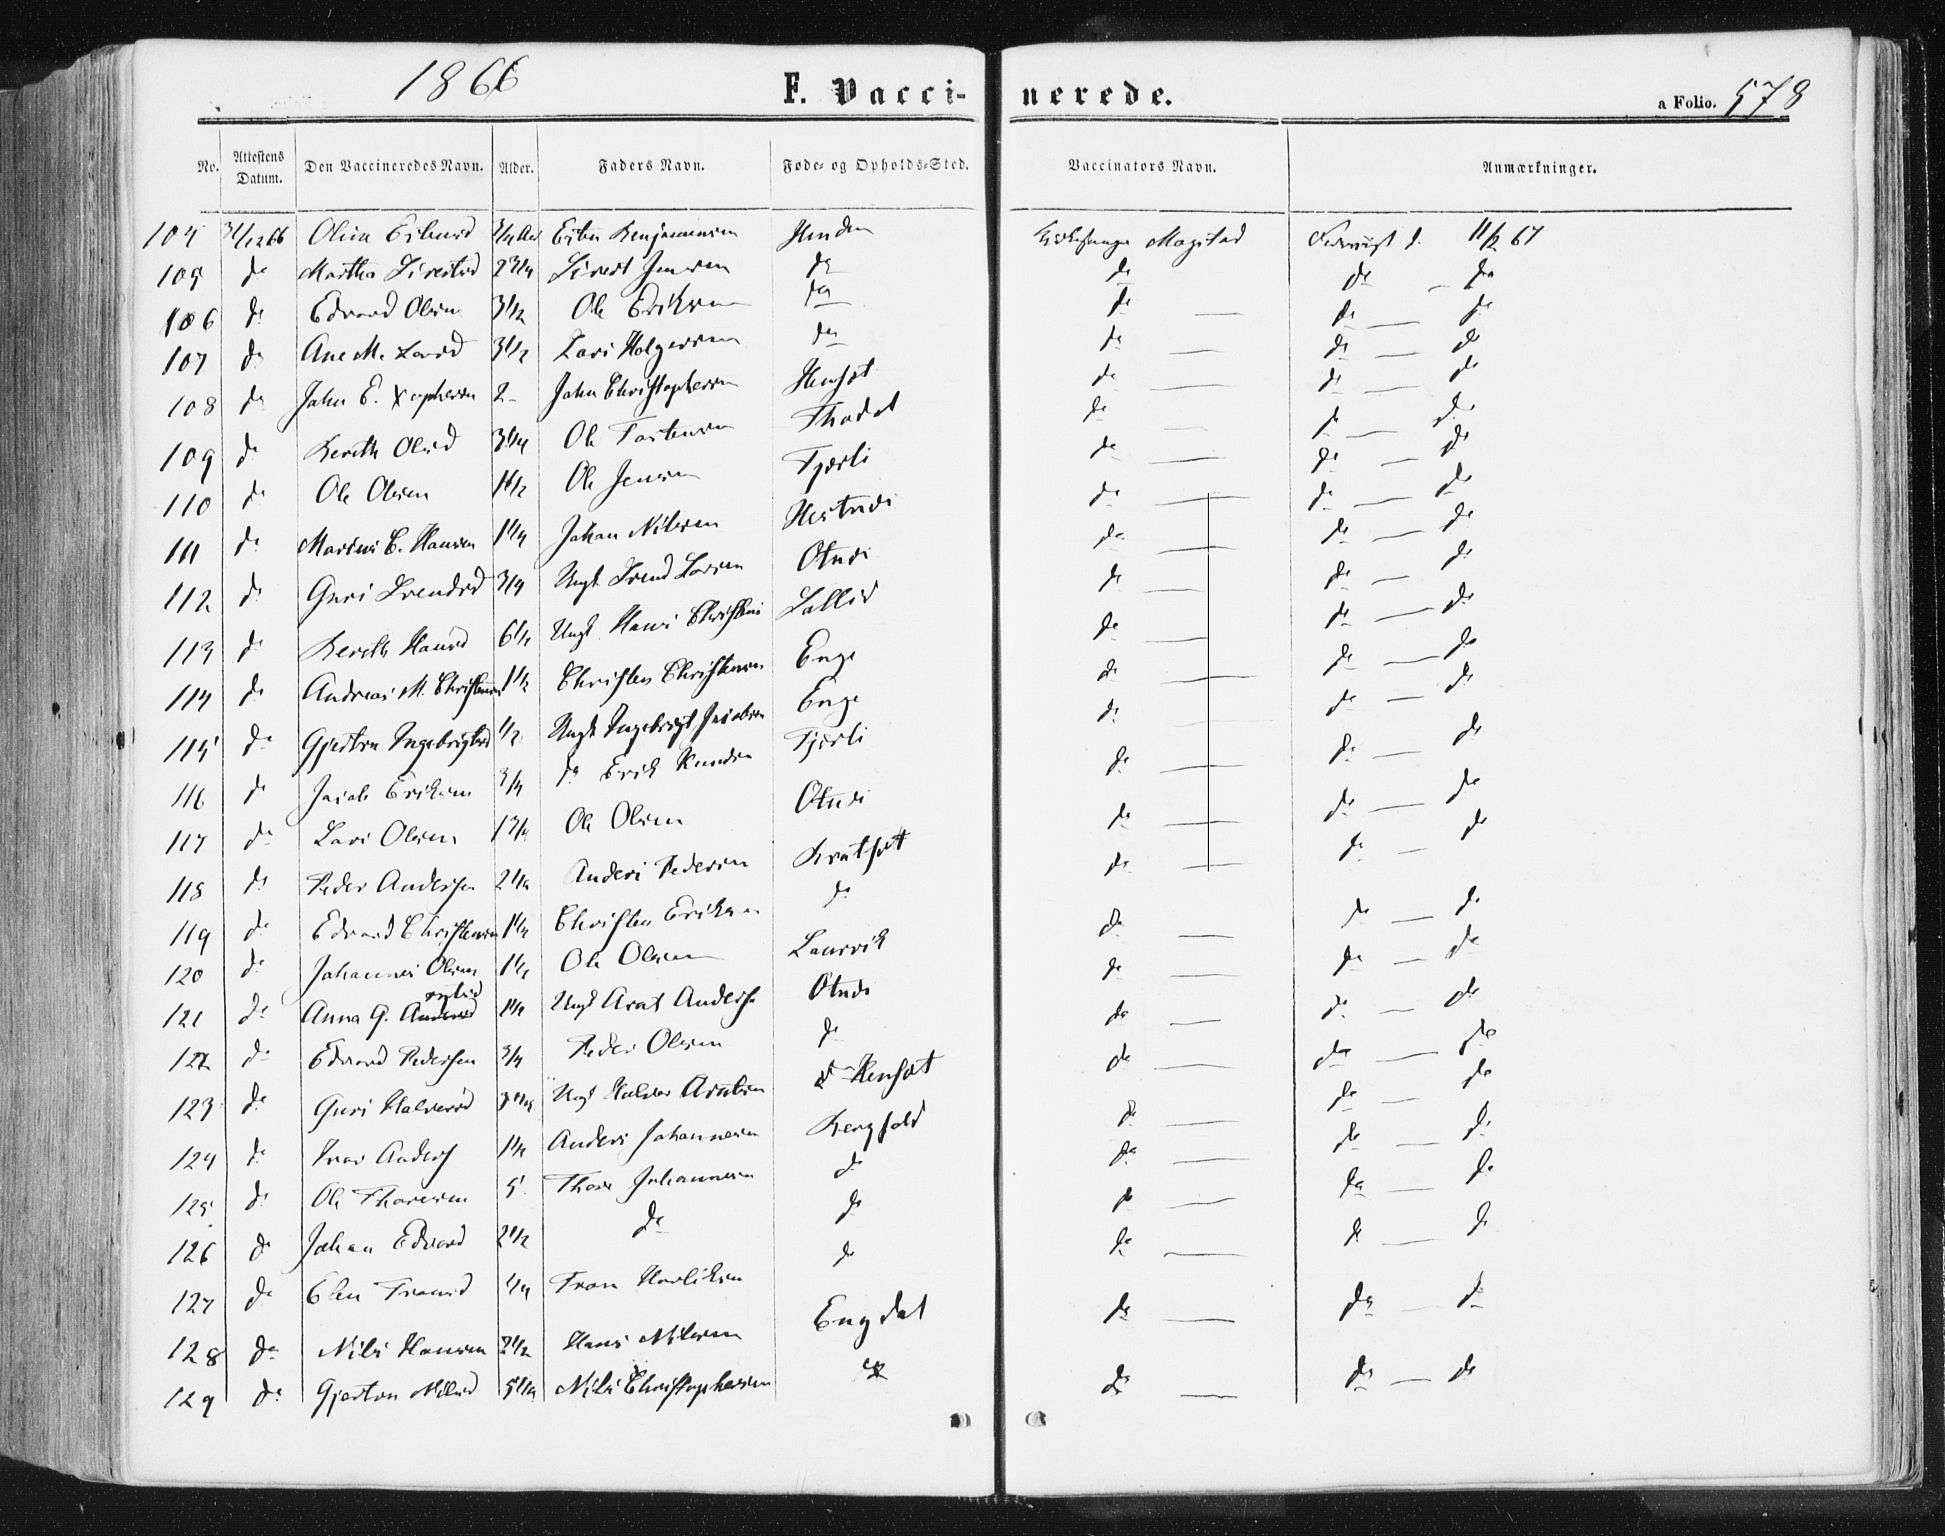 1866 F. Vaccinerede. a Folio. 578
No. Attestens Datum. Den Vaccineredes Navn. Alder. Faders Navn. Føde- og Opholds-Sted. Vaccinators Navn. Anmærkninger.
104 31/12 66 Olina Esbensd 3/4 Aar Esben Benjaminsen Henden Kirkesanger Magstad 11/2 67
105 do Martha Siverts 2 3/4 Sivert Jensen do do do - do
106 do Edvard Olsen 3 1/2 Ole Eriksen do do — do — do
107 do Ane M. Larsd 3 1/2 Lars Holgersen do do — do — do
108 do John E. Xophersen 2 - John Christophersen do — do — do
109 do Bereth Olsd 3 1/4 Ole Tostensen do — do — do
110 do Ole Olsen 1 1/2 Ole Jensen Fjerli do — do — do
111 do Marius C. Hansen 1 1/4 Johan Nilsen Hestnes do — do — do
112 do Guri Trondsd 3/4 Ungk Trond Larsen Otnes do — do — do
113 do Bereth Hansd 6 1/2 Ungk Hans Christens do — do — do
114 do Andreas M. Christensen 1 1/2 Christen Christensen Enge do — do — do
115 do Gjertru Ingebrigtsd 1/2 Ungk Ingebrigt Jacobsen Enge do — do — do
116 do Jacob Eriksen 3/4 do Erik Knudsen Fjerli do — do — do
117 do Lars Olsen 1 3/4 Ole Olsen Otnes do — do — do
118 do Peder Andersen 2 1/4 Anders Pedersen do — do — do
119 do Edvard Christensen 1 1/4 Christen Eriksen do do — do — do
120 do Johannes Olsen 1 1/2 Ole Olsen Laurvik do — do — do
121 do Anna G. 1 1/2 Ungk Arnt Anders Otnes do — do — do
122 do Edvard Pedersen 3/4 Peder Olsen do do — do — do
123 do Guri Halvorsd Ungk Halvor Arntsen do — do
124 do Iver Anders 1 1/2 Anders Johannesen do — do — do
125 do Ole Thoresen 5 Thore Johannesen do do — do — do
126 do Johan Edvard 2 1/2 do do do — do — do
127 do Elen 1/4 do do — do — do
128 do Nils Hansen 2 1/2 Hans Nilsen Engdal do — do — do
129 do Gjertru Nilsd 5 1/4 Nils Christophersen do do — do — do